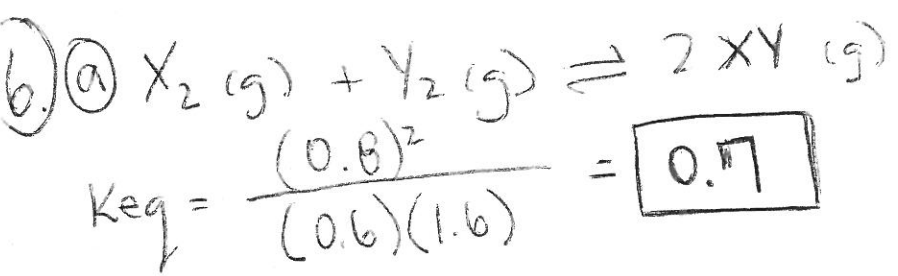 6. a X₂ (g) + Y₂ (g) ⇌ 2 XY (g)
Keq = (0.8)² / (0.6)(1.6) = 0.7